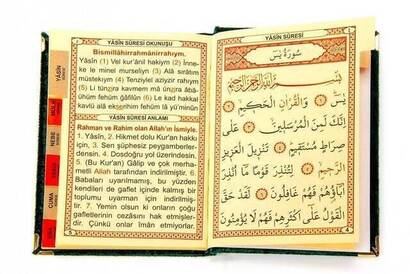 YÂSİN SÛRESİ OKUNUŞU
Bismillâhirrahmânirrahıym.
Yâsîn (1) Vel kur'ânil hakiym (2) İnne-
ke le minel murseliyn (3) Alâ sırâtım
müstekıym (4) Tenziylel aziyzir rahıym.
(5) Li tünzira kavmem mâ ünzira âbâ-
ühüm fehüm ğâfilûn (6) Le kad hakkal
kavlü alâ ekserihim fehüm lâ yü'minûn (7)
YÂSİN SÛRESİ ANLAMI
Rahman ve Rahim olan Allah'ın İsmiyle.
1. Yâsîn, 2. Hikmet dolu Kur'an hakkı
için, 3. Sen şüphesiz peygamberler-
densin. 4. Dosdoğru yol üzerindesin.
5. (Bu Kur'an) Gâlip ve çok merha-
metli Allah tarafından indirilmiştir. 6.
Babaları uyarılmamış, bu yüzden
kendileri de gaflet içinde kalmış bir
toplumu uyarman için indirilmiş-
tir. 7. Yemin olsun ki onların çoğu
gafletlerinin cezasını hak etmişler-
dir. Çünkü onlar îman etmiyorlar.
YÂSİN
MÜLK
NEBE
CUMA
YÂSİN SÛRESİ
سُورَةُ يٰسٓ
بِسْمِ اللّٰهِ الرَّحْمٰنِ الرَّحِيمِ
يٰسٓ ۝ وَالْقُرْاٰنِ الْحَكِيمِ ۝
اِنَّكَ لَمِنَ الْمُرْسَلِينَ ۝ عَلٰى
صِرَاطٍ مُسْتَقِيمٍ ۝ تَنْزِيلَ الْعَزِيزِ
الرَّحِيمِ ۝ لِتُنْذِرَ قَوْمًا مَٓا اُنْذِرَ
اٰبَٓاؤُهُمْ فَهُمْ غَافِلُونَ ۝ لَقَدْ حَقَّ
الْقَوْلُ عَلٰٓى اَكْثَرِهِمْ فَهُمْ لَا يُؤْمِنُونَ
4